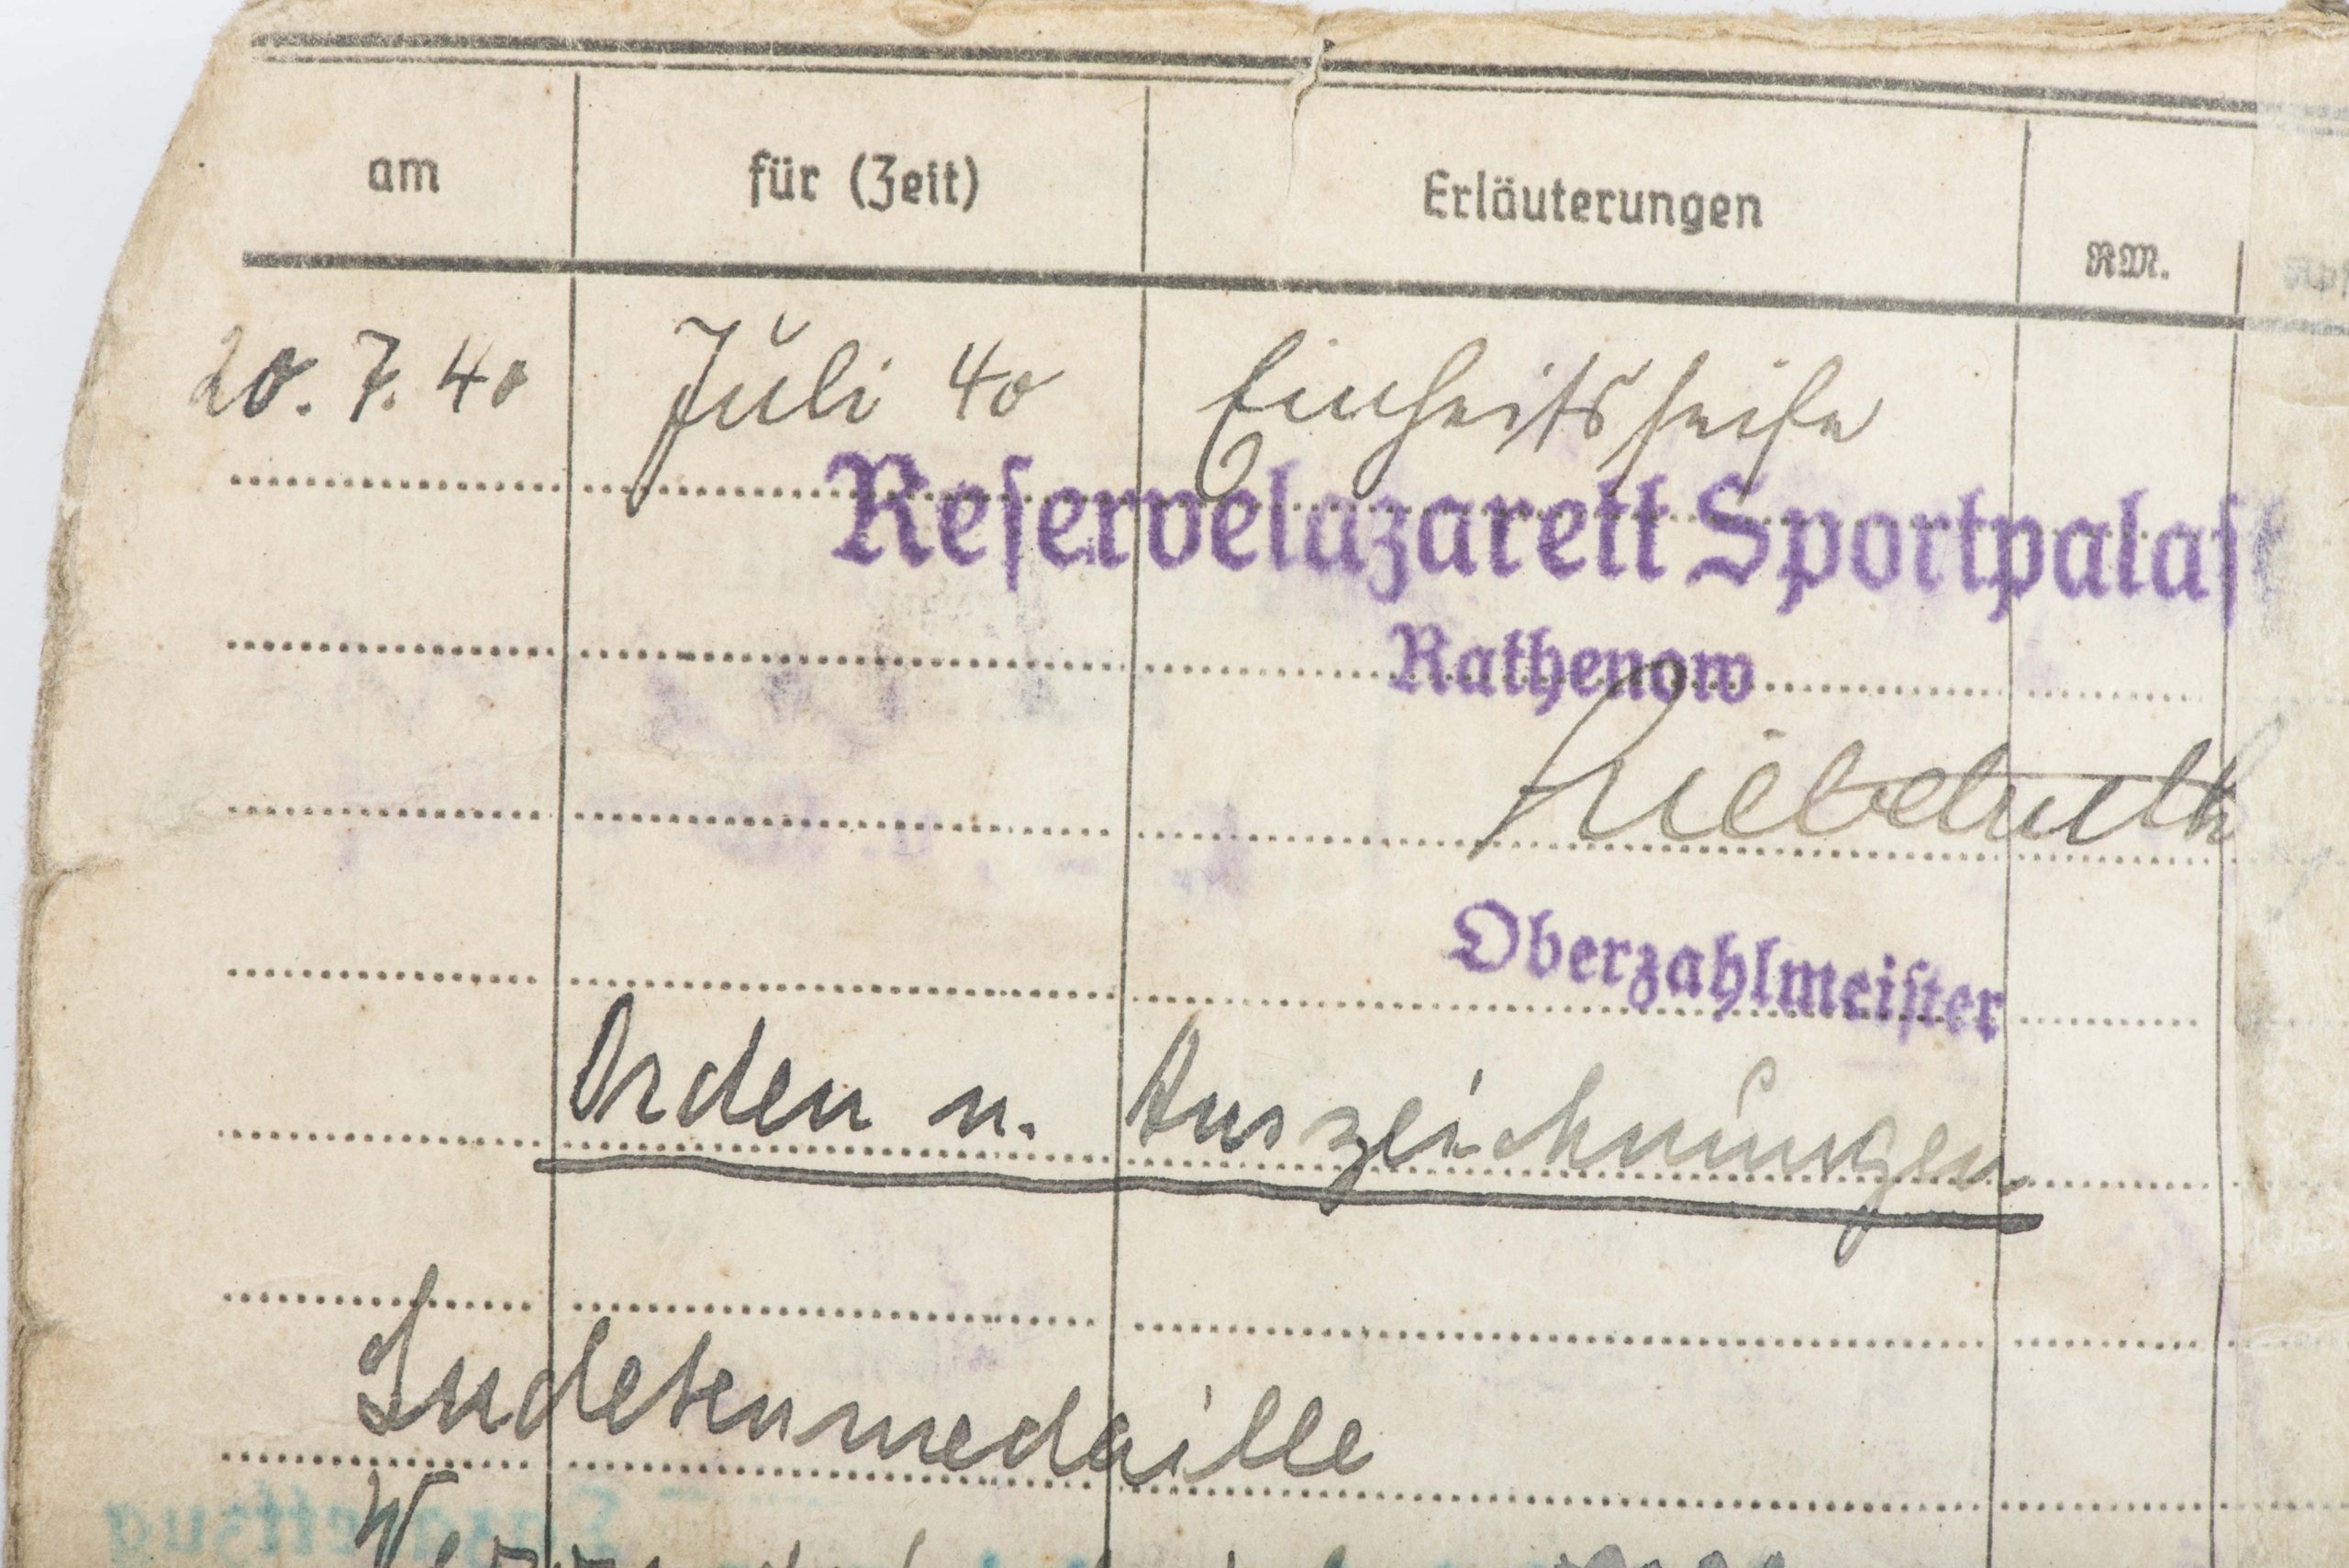 am für (Zeit) Erläuterungen
RM.
20.7.40 Juli 40 Einheitsseife
Reservelazarett Sportpalast
Rathenow
Oberzahlmeister
Orden u. Auszeichnungen
Sudetenmedaille